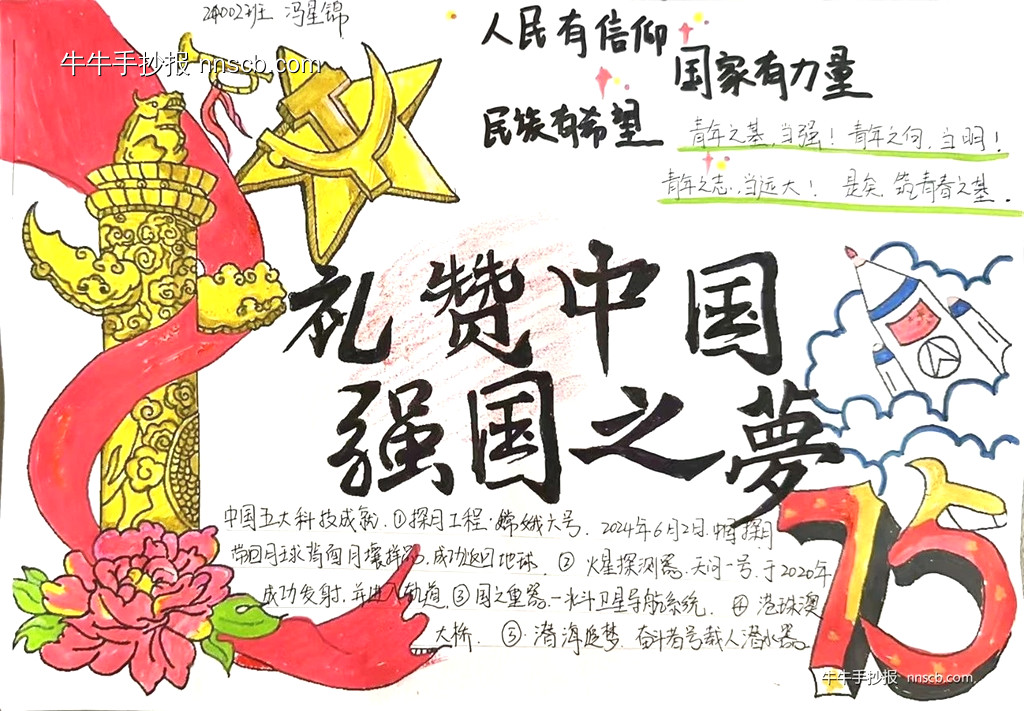 24002班 冯星锦
牛牛手抄报 nnscb.com
人民有信仰
国家有力量
民族有希望
青年之基,当强!青年之向,当明!
青年之志,当远大!是矣,筑青春之基.
礼赞中国
强国之夢
中国五大科技成就.①探月工程·嫦娥六号. 2024年6月2日.中国探月
带回月球背面月壤样品,成功返回地球. ② 火星探测器.天问一号.于2020年
成功发射,并进入轨道 ③国之重器.一北斗卫星导航系统. ④ 港珠澳
大桥. ⑤·潜海逐梦.奋斗者号载人潜水器.
75
牛牛手抄报 nnscb.com